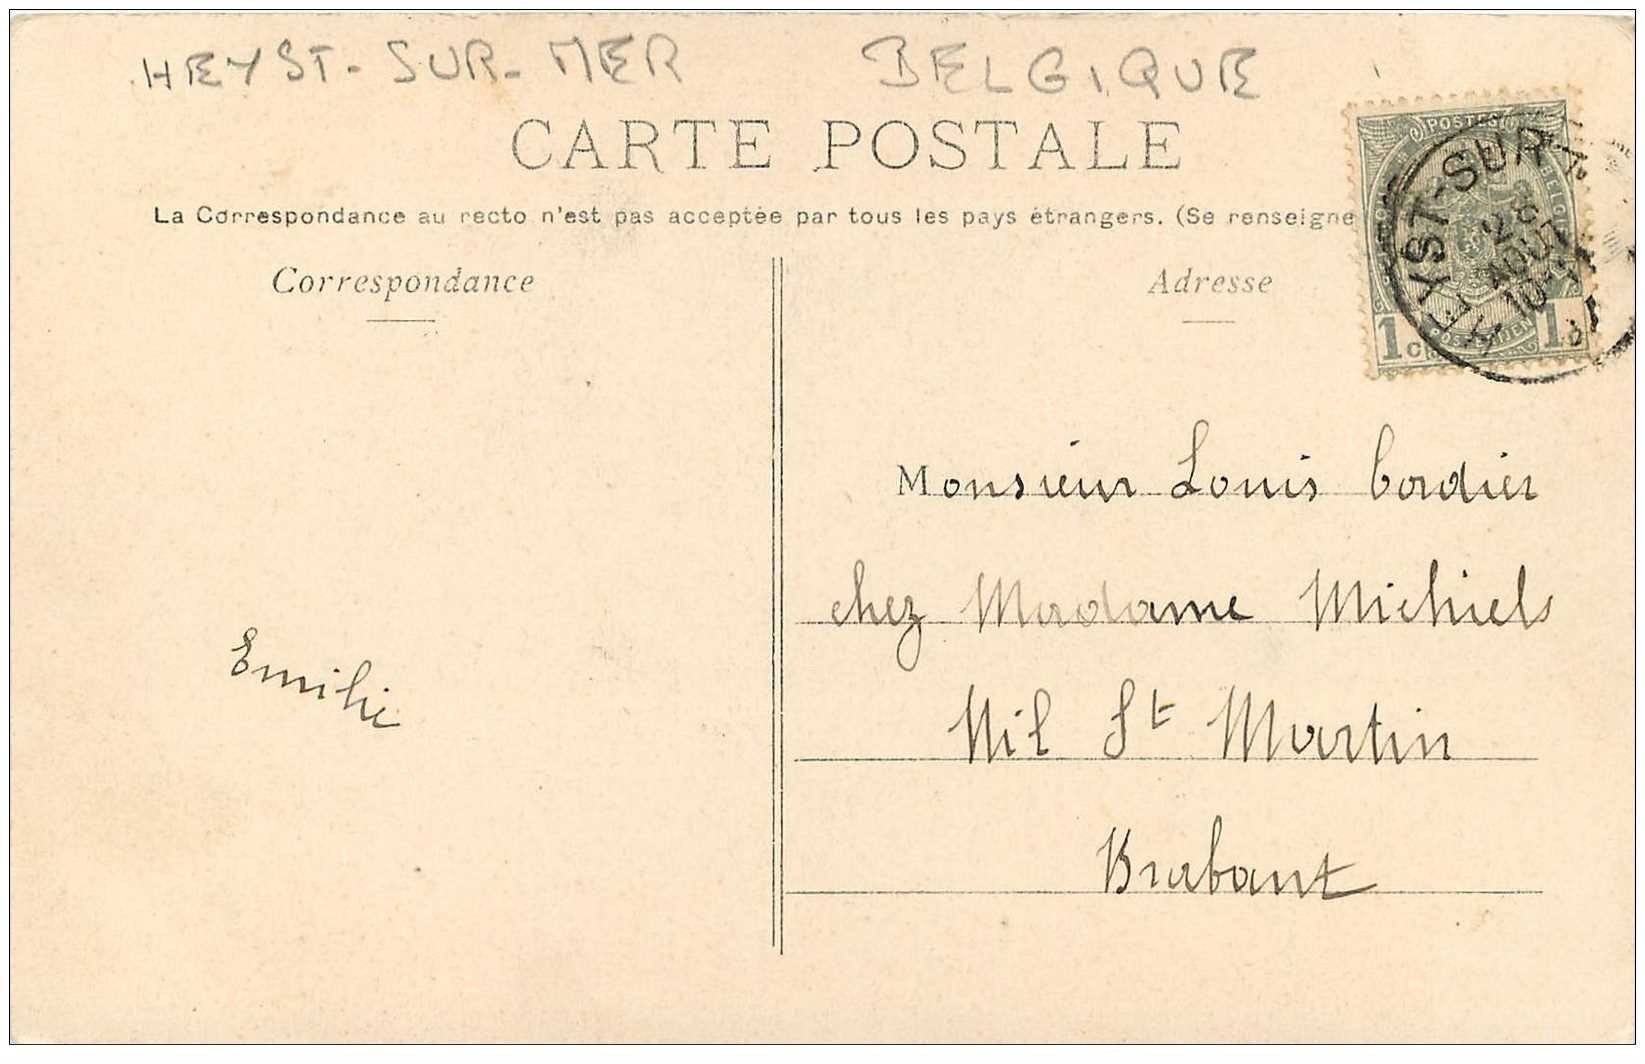 HEYST-SUR-MER BELGIQUE
CARTE POSTALE
La Correspondance au recto n'est pas acceptée par tous les pays étrangers. (Se renseigne
Correspondance
Adresse
POSTES
HEYST-SUR
26
AOUT
10
1c
1
Monsieur Louis Cordier
chez Madame Michiels
Nil St Martin
Brabant
Emilie